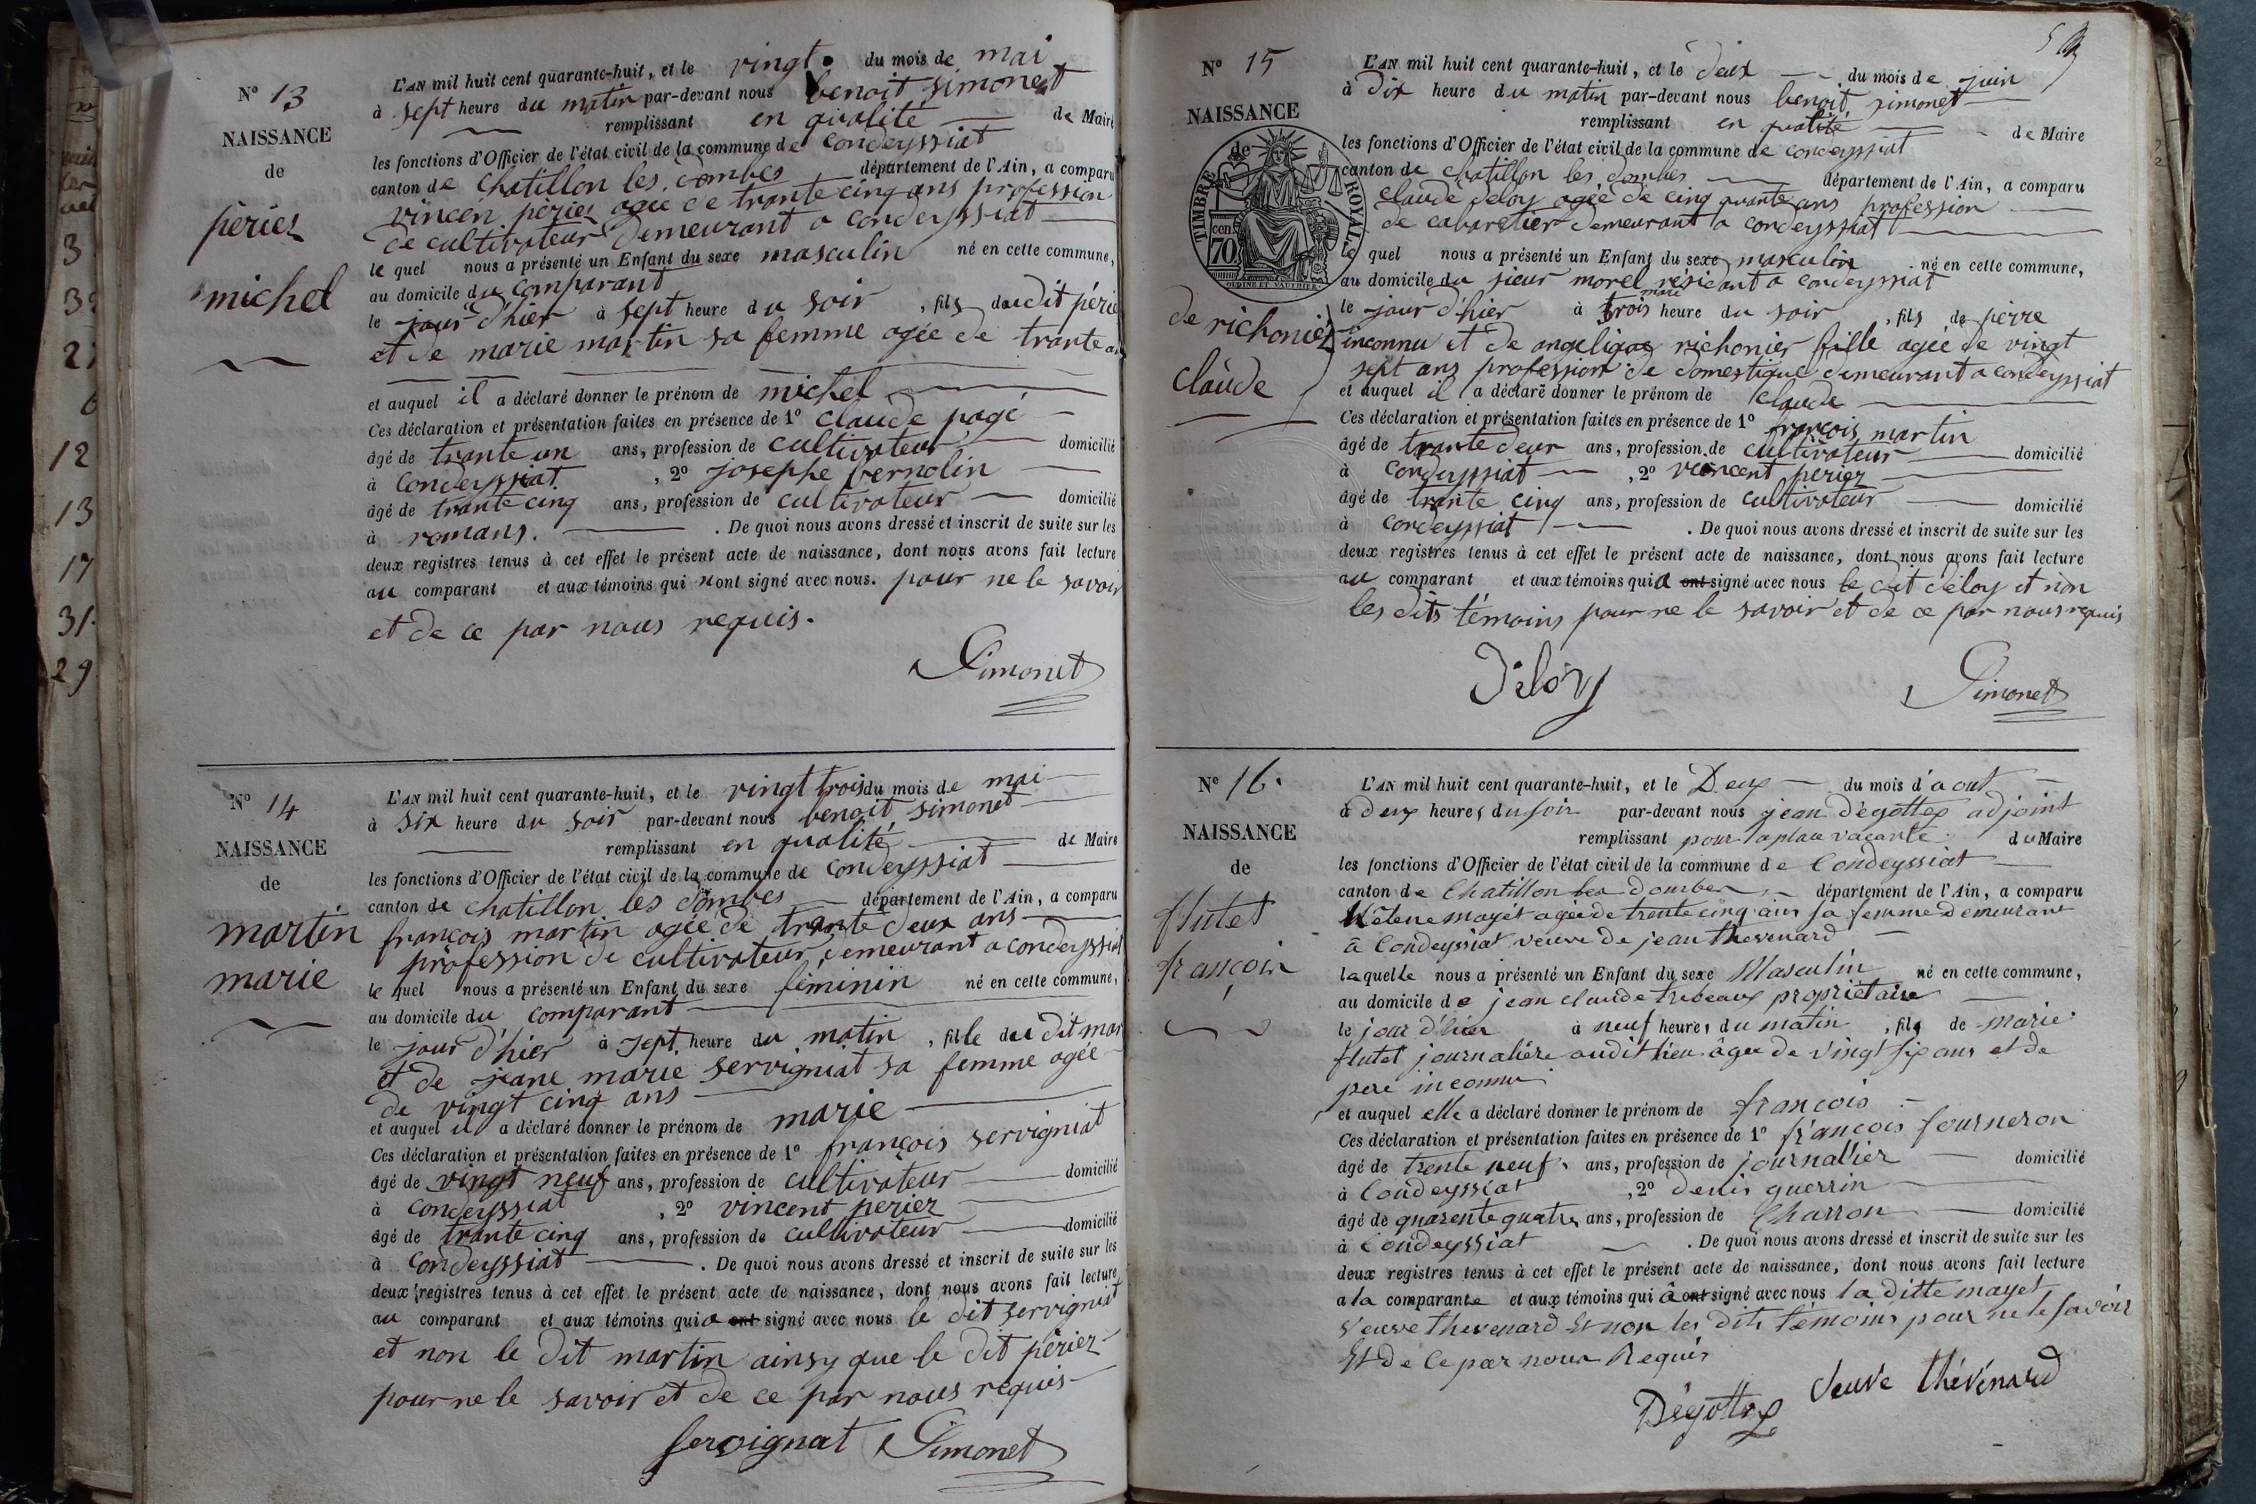 N° 13
NAISSANCE
de
périez
michel
L'AN mil huit cent quarante-huit, et le vingt du mois de mai
à sept heure du matin par-devant nous benoit simonet
remplissant en qualité de Maire
les fonctions d'Officier de l'état civil de la commune de condeyssiat
canton de chatillon les dombes département de l'Ain, a comparu
vincen périez agée de trante cinq ans profession
de cultivateur demeurant a condeyssiat
le quel nous a présenté un Enfant du sexe masculin né en cette commune,
au domicile du comparant
le jour d'hier à sept heure du soir, fils du dit périez
et de marie martin sa femme agée de trante
et auquel il a déclaré donner le prénom de michel
Ces déclaration et présentation faites en présence de 1° claude pagé
âgé de trante un ans, profession de cultivateur domicilié
à condeyssiat, 2° josephe bernolin
âgé de trante cinq ans, profession de cultivateur domicilié
à romans. De quoi nous avons dressé et inscrit de suite sur les
deux registres tenus à cet effet le présent acte de naissance, dont nous avons fait lecture
au comparant et aux témoins qui nont signé avec nous. pour ne le savoir
et de ce par nous requis.
Simonet
N° 14
NAISSANCE
de
martin
marie
L'AN mil huit cent quarante-huit, et le vingt trois du mois de mai
à six heure du soir par-devant nous benoit simonet
remplissant en qualité de Maire
les fonctions d'Officier de l'état civil de la commune de condeyssiat
canton de chatillon les dombes département de l'Ain, a comparu
françois martin agée de trante deux ans
profession de cultivateur demeurant a condeyssiat
le quel nous a présenté un Enfant du sexe féminin né en cette commune,
au domicile du comparant
le jour d'hier à sept heure du matin, fille du dit mar
et de jeane marie servigniat sa femme agée
de vingt cinq ans
et auquel il a déclaré donner le prénom de marie
Ces déclaration et présentation faites en présence de 1° françois servigniat
âgé de vingt neuf ans, profession de cultivateur domicilié
à condeyssiat, 2° vincent periez
âgé de trante cinq ans, profession de cultivateur domicilié
à condeyssiat. De quoi nous avons dressé et inscrit de suite sur les
deux registres tenus à cet effet le présent acte de naissance, dont nous avons fait lecture
au comparant et aux témoins qui a ont signé avec nous le dit servigniat
et non le dit martin ainsy que le dit périez
pour ne le savoir et de ce par nous requis
servignat Simonet
N° 15
NAISSANCE
de
TIMBRE ROYAL
70 cen
OUDINE ET VAUTHIER
de richonier
claude
L'AN mil huit cent quarante-huit, et le deux du mois de juin
à dix heure du matin par-devant nous benoit simonet
remplissant en qualité de Maire
les fonctions d'Officier de l'état civil de la commune de condeyssiat
canton de chatillon les dombes département de l'Ain, a comparu
claude deloy agée de cinq quante ans profession
de cabaretier demeurant a condeyssiat
le quel nous a présenté un Enfant du sexe masculin né en cette commune,
au domicile du sieur morel résidant a condeyssiat
le jour d'hier à trois heure du soir, fils de pérre
inconnu et de angelique richonier fille agée de vingt
sept ans profession de domestique demeurant a condeyssiat
et auquel il a déclaré donner le prénom de claude
Ces déclaration et présentation faites en présence de 1° françois martin
âgé de trante deux ans, profession de cultivateur domicilié
à condeyssiat, 2° vencent periez
âgé de trante cinq ans, profession de cultivateur domicilié
à condeyssiat. De quoi nous avons dressé et inscrit de suite sur les
deux registres tenus à cet effet le présent acte de naissance, dont nous avons fait lecture
au comparant et aux témoins qui a ont signé avec nous le dit deloy et non
les dits témoins pour ne le savoir et de ce par nous requis
Déloy Simonet
N° 16.
NAISSANCE
de
flutet
françois
L'AN mil huit cent quarante-huit, et le Deux du mois d'aout
à deux heures du soir par-devant nous jean dégottex adjoint
remplissant pour la place vacante du Maire
les fonctions d'Officier de l'état civil de la commune de Condeyssiat
canton de Chatillon les dombes département de l'Ain, a comparu
héléne mayét agée de trente cinq ans sa femme demeurant
à Condeyssiat veuve de jean thevenard
laquelle nous a présenté un Enfant du sexe Masculin né en cette commune,
au domicile de jean claude tribeaux propriétaire
le jour d'hier à neuf heures du matin, fils de marie
flutet journaliére audit lieu âgée de vingt six ans et de
pere inconnu
et auquel elle a déclaré donner le prénom de françois
Ces déclaration et présentation faites en présence de 1° françois fourneron
âgé de trente neuf ans, profession de journallier domicilié
à Condeyssiat, 2° denis guerrin
âgé de quarente quatre ans, profession de Charron domicilié
à Condeyssiat. De quoi nous avons dressé et inscrit de suite sur les
deux registres tenus à cet effet le présent acte de naissance, dont nous avons fait lecture
a la comparante et aux témoins qui à ont signé avec nous la ditte mayet
veuve thevenard Et non les dits témoins pour ne le savoir
Et de Ce par nous Requis
Dégottex veuve thévénard
3
12
13
17
31.
29